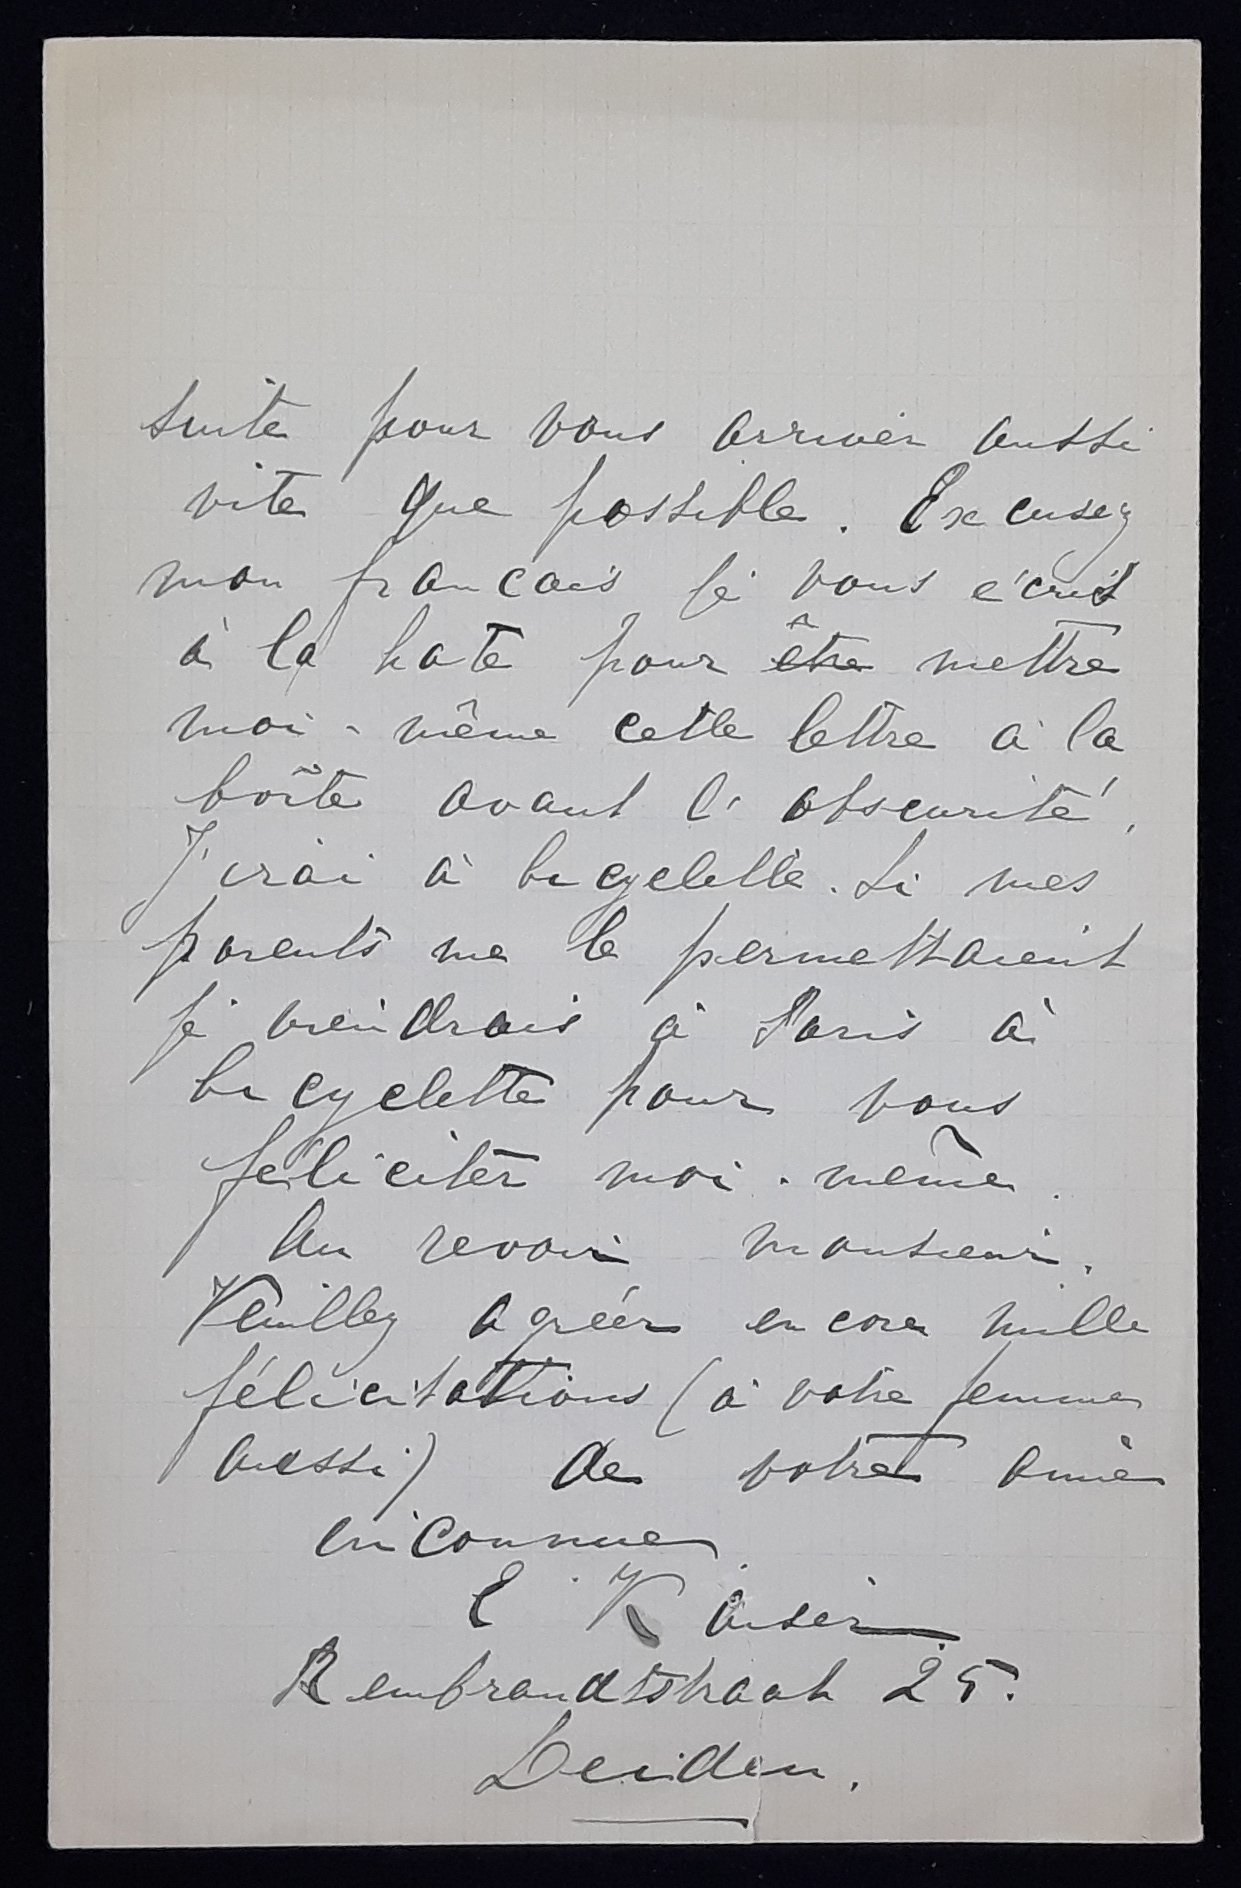 suite pour vous arriver aussi
vite que possible. Excusez
mon francais je vous écris
à la hate pour être mettre
moi-même cette lettre à la
boîte avant l'obscurité.
J'irai à bicyclette. Si mes
parents me le permettaient
je viendrais à Paris à
bicyclette pour vous
féliciter moi-même.
Au revoir monsieur.
Veuillez agréer encore mille
félicitations (à votre femme
aussi) de votre amie
inconnue.
E Kaiser
Rembrandtstraat 25.
Leiden.